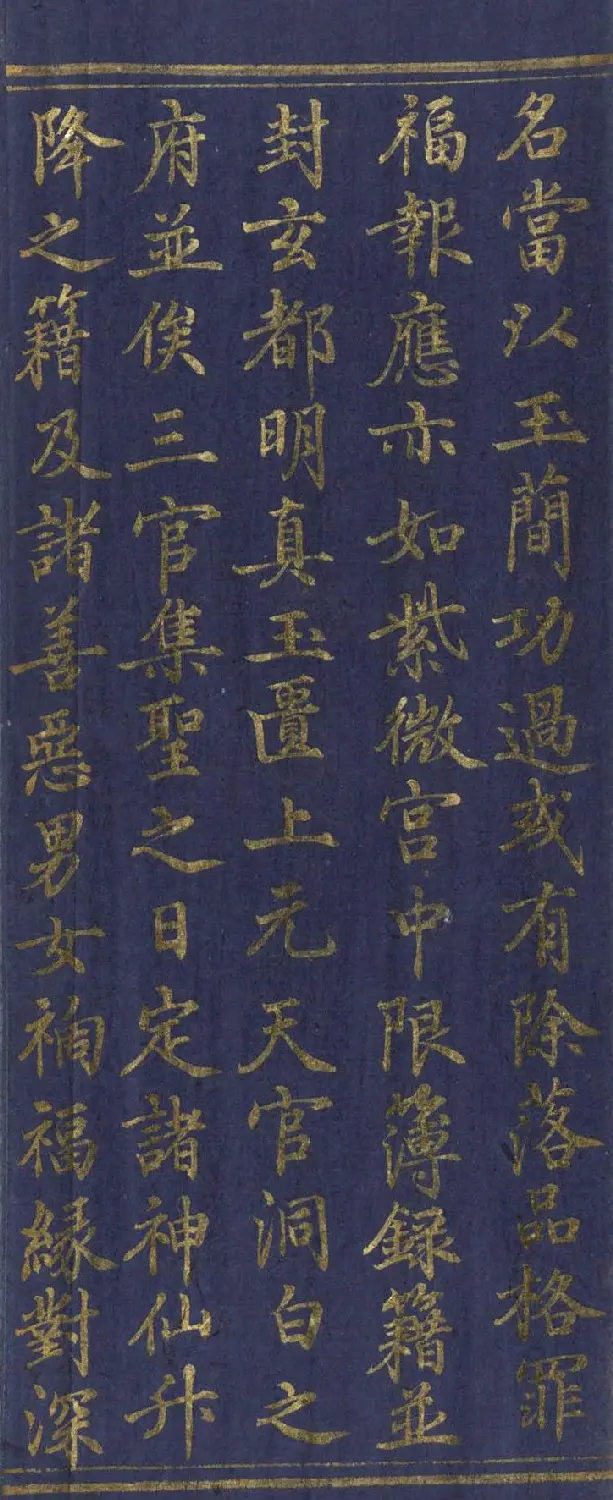 名當以玉蕳功過或有除落品格罪
福報應亦如紫微宮中限簿録籍並
封玄都明真玉匱上元天官洞白之
府並俟三官集聖之日定諸神仙升
降之籍及諸善惡男女禍福緣對深